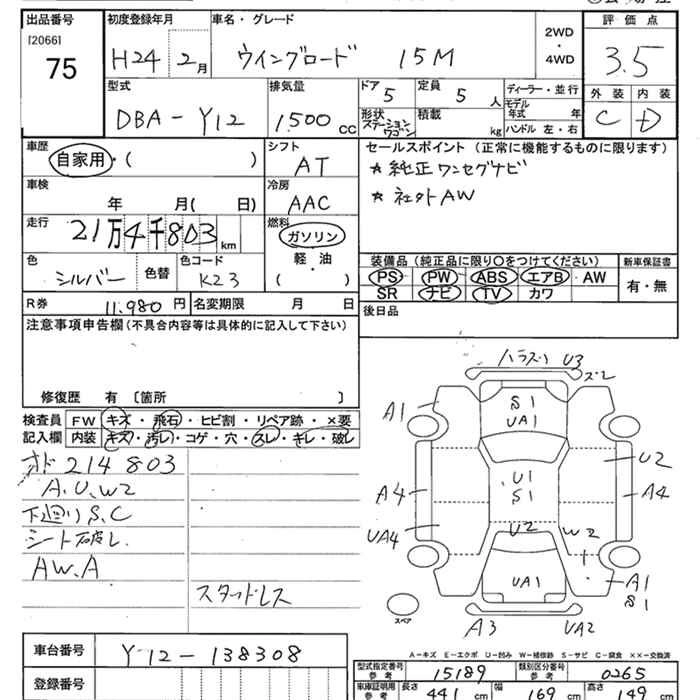 出品番号 初度登録年月 車名・グレード 2WD・4WD 評価点
[2066]
75 H24 2月 ウイングロード 15M 3.5
型式 排気量 ドア 定員 ディーラー・並行 外装 内装
DBA-Y12 1.500cc 5 5人 モデル年式 年 C D
形状 ステーションワゴン 積載 kg ハンドル 左・右
車歴 シフト セールスポイント (正常に機能するものに限ります)
自家用・( ) AT ★純正ワンセグナビ
車検 冷房 ★社外AW
年 月( 日) AAC
走行 燃料
21万4千803km ガソリン
軽・油
( )
色 色替 色コード 装備品 (純正品に限り〇をつけてください) 新車保証書
シルバー K23 PS PW ABS エアB AW 有・無
SR ナビ TV カワ
R券 11.980円 名変期限 月 日 後日品
注意事項申告欄 (不具合内容等は具体的に記入して下さい)
修復歴 有 〔箇所 〕
検査員 FW キズ・飛石・ヒビ割・リペア跡・×要
記入欄 内装 キズ・汚レ・コゲ・穴・スレ・キレ・破レ
214803
A.U.W2
下廻りS.C
シート破レ
AW.A
スタッドレス
U3
ズレ
S1
UA1
A1
U2
U1
S1
A4
A4
UA4
U2
W2
UA1
A1
S1
スペア
A3
UA2
A-キズ E-エクボ U-凹み W-補修跡 S-サビ C-腐食 ××-交換済
車台番号 Y12-138308
登録番号
型式指定番号 参考 15189 類別区分番号 参考 0265
車庫証明用 参考 長さ 441cm 幅 169cm 高さ 149cm